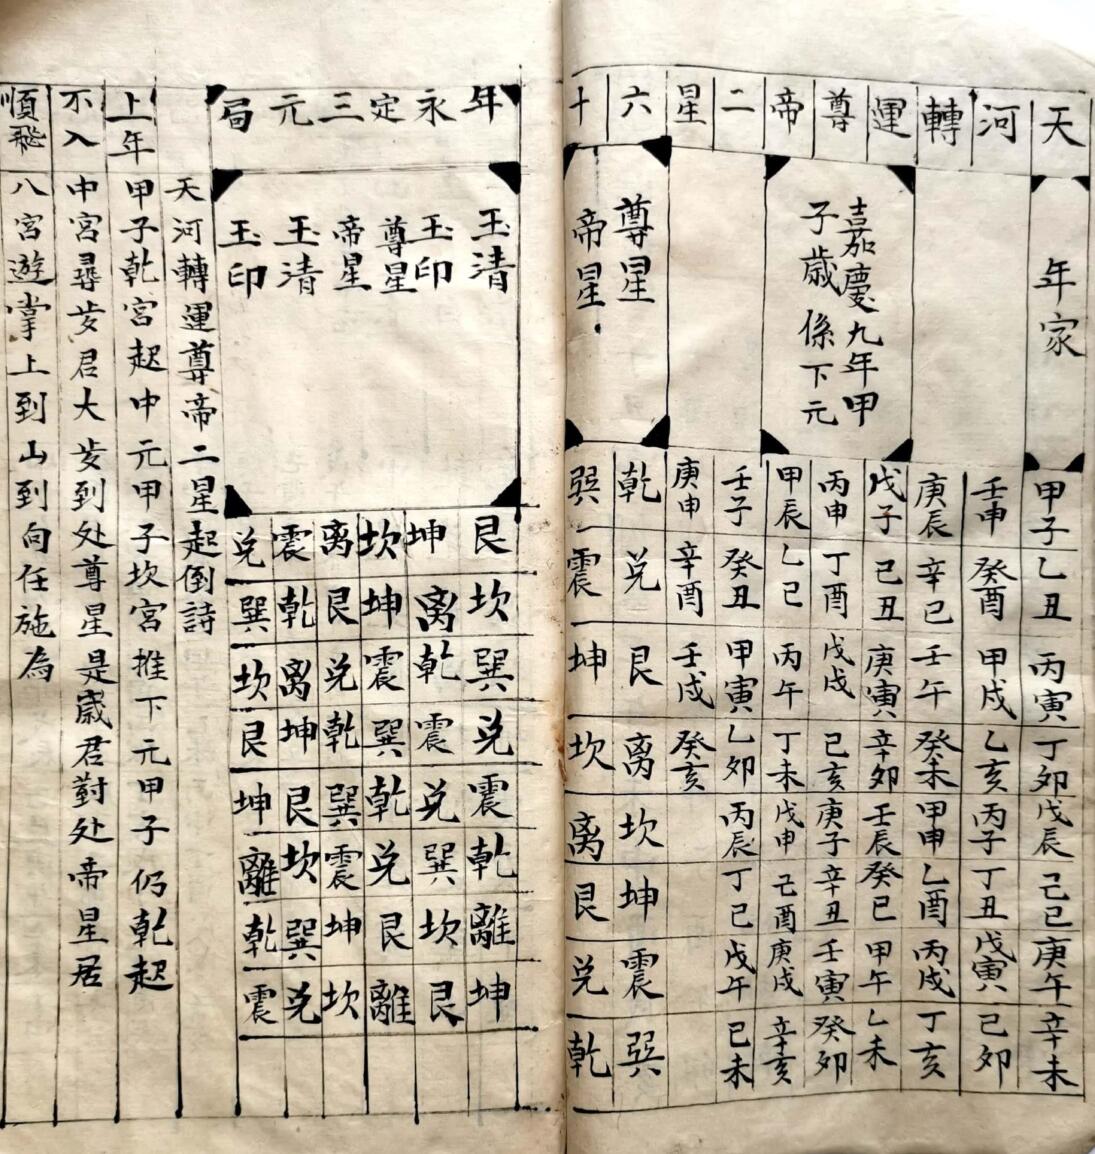 天河轉運尊帝二星六十年永定三元局
年家
甲子 乙丑 丙寅 丁夘 戊辰 己巳 庚午 辛未
壬申 癸酉 甲戌 乙亥 丙子 丁丑 戊寅 己夘
庚辰 辛巳 壬午 癸未 甲申 乙酉 丙戌 丁亥
嘉慶九年甲
子歲係下元
戊子 己丑 庚寅 辛夘 壬辰 癸巳 甲午 乙未
丙申 丁酉 戊戌 己亥 庚子 辛丑 壬寅 癸夘
甲辰 乙巳 丙午 丁未 戊申 己酉 庚戌 辛亥
壬子 癸丑 甲寅 乙夘 丙辰 丁巳 戊午 己未
庚申 辛酉 壬戌 癸亥
尊星 乾 兑 艮 离 坎 坤 震 巽
帝星 巽 震 坤 坎 离 艮 兑 乾
玉清 艮 坎 巽 兑 震 乾 離 坤
玉印 坤 离 乾 震 兑 巽 坎 艮
尊星 坎 坤 震 巽 乾 兑 艮 離
帝星 离 艮 兑 乾 巽 震 坤 坎
玉清 震 乾 离 坤 艮 坎 巽 兑
玉印 兑 巽 坎 艮 坤 離 乾 震
天河轉運尊帝二星起倒詩
上年甲子乾宮起中元甲子坎宮推下元甲子仍乾起
不入中宮尋岁君大岁到处尊星是歲君對处帝星居
順飛八宮遊掌上到山到向任施為